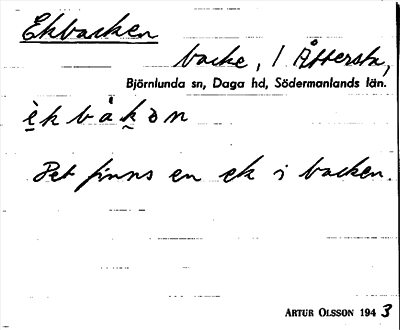 Ekbacken
backe, / Åttersta,
Björnlunda sn, Daga hd, Södermanlands län.
è̱kbàḵən
Det finns en ek i backen.
ARTUR OLSSON 1943